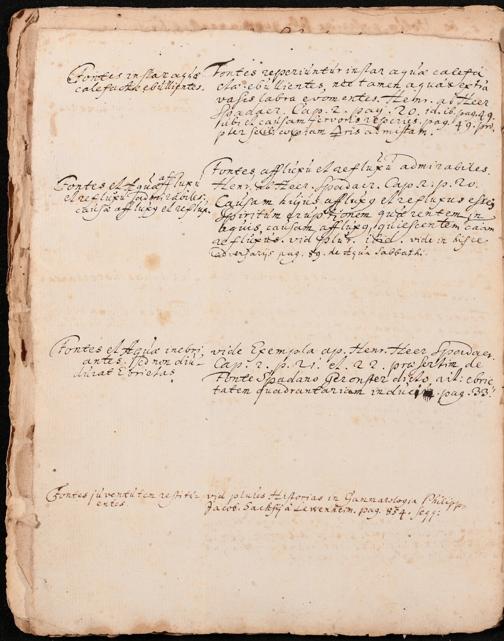 Fontes instar aquæ
calefactæ ebullientes.
Fontes reperiuntur instar aquæ calefa
ctæ ebullientes, nec tamen aquas extra
vasis labra evomentes. Henr. ab Heer
Spadacr. Cap. 2. pag. 20. id. ib. pag. 49.
ubi et causam fervoris reperies. pag. 49. pro
pter copiam aëris admistam.
Fontes et Aquæ affluxu
et refluxu admirabiles.
causa affluxus et reflux.
Fontes affluxu et refluxu admirabiles.
Henr. ab Heer. Spadacr. Cap. 2. p. 20.
Causam hujus affluxus et refluxus esse
Spiritum eruptionem quærentem in
aquis, causam affluxus, quiescentem caam
refluxus. vid. plur. ibid. vide in hisce
adversarijs pag. 89. de Aqua Sabbath.
Fontes et Aquæ inebri
antes. sed non diu
durat Ebrietas
vide Exempla ap. Henr. Heer Spadacr.
Cap. 2. p. 21. et 22. præsertim de
Fonte Spadano Geronster dicto, ait ebrie
tatem quadrantarium inducere. pag. 33.
Fontes juventutem restitu
entes.
vid plures Historias in Gammarologia Philipp.
Jacob. Sachsij à Lewenheim. pag. 854. seqq.